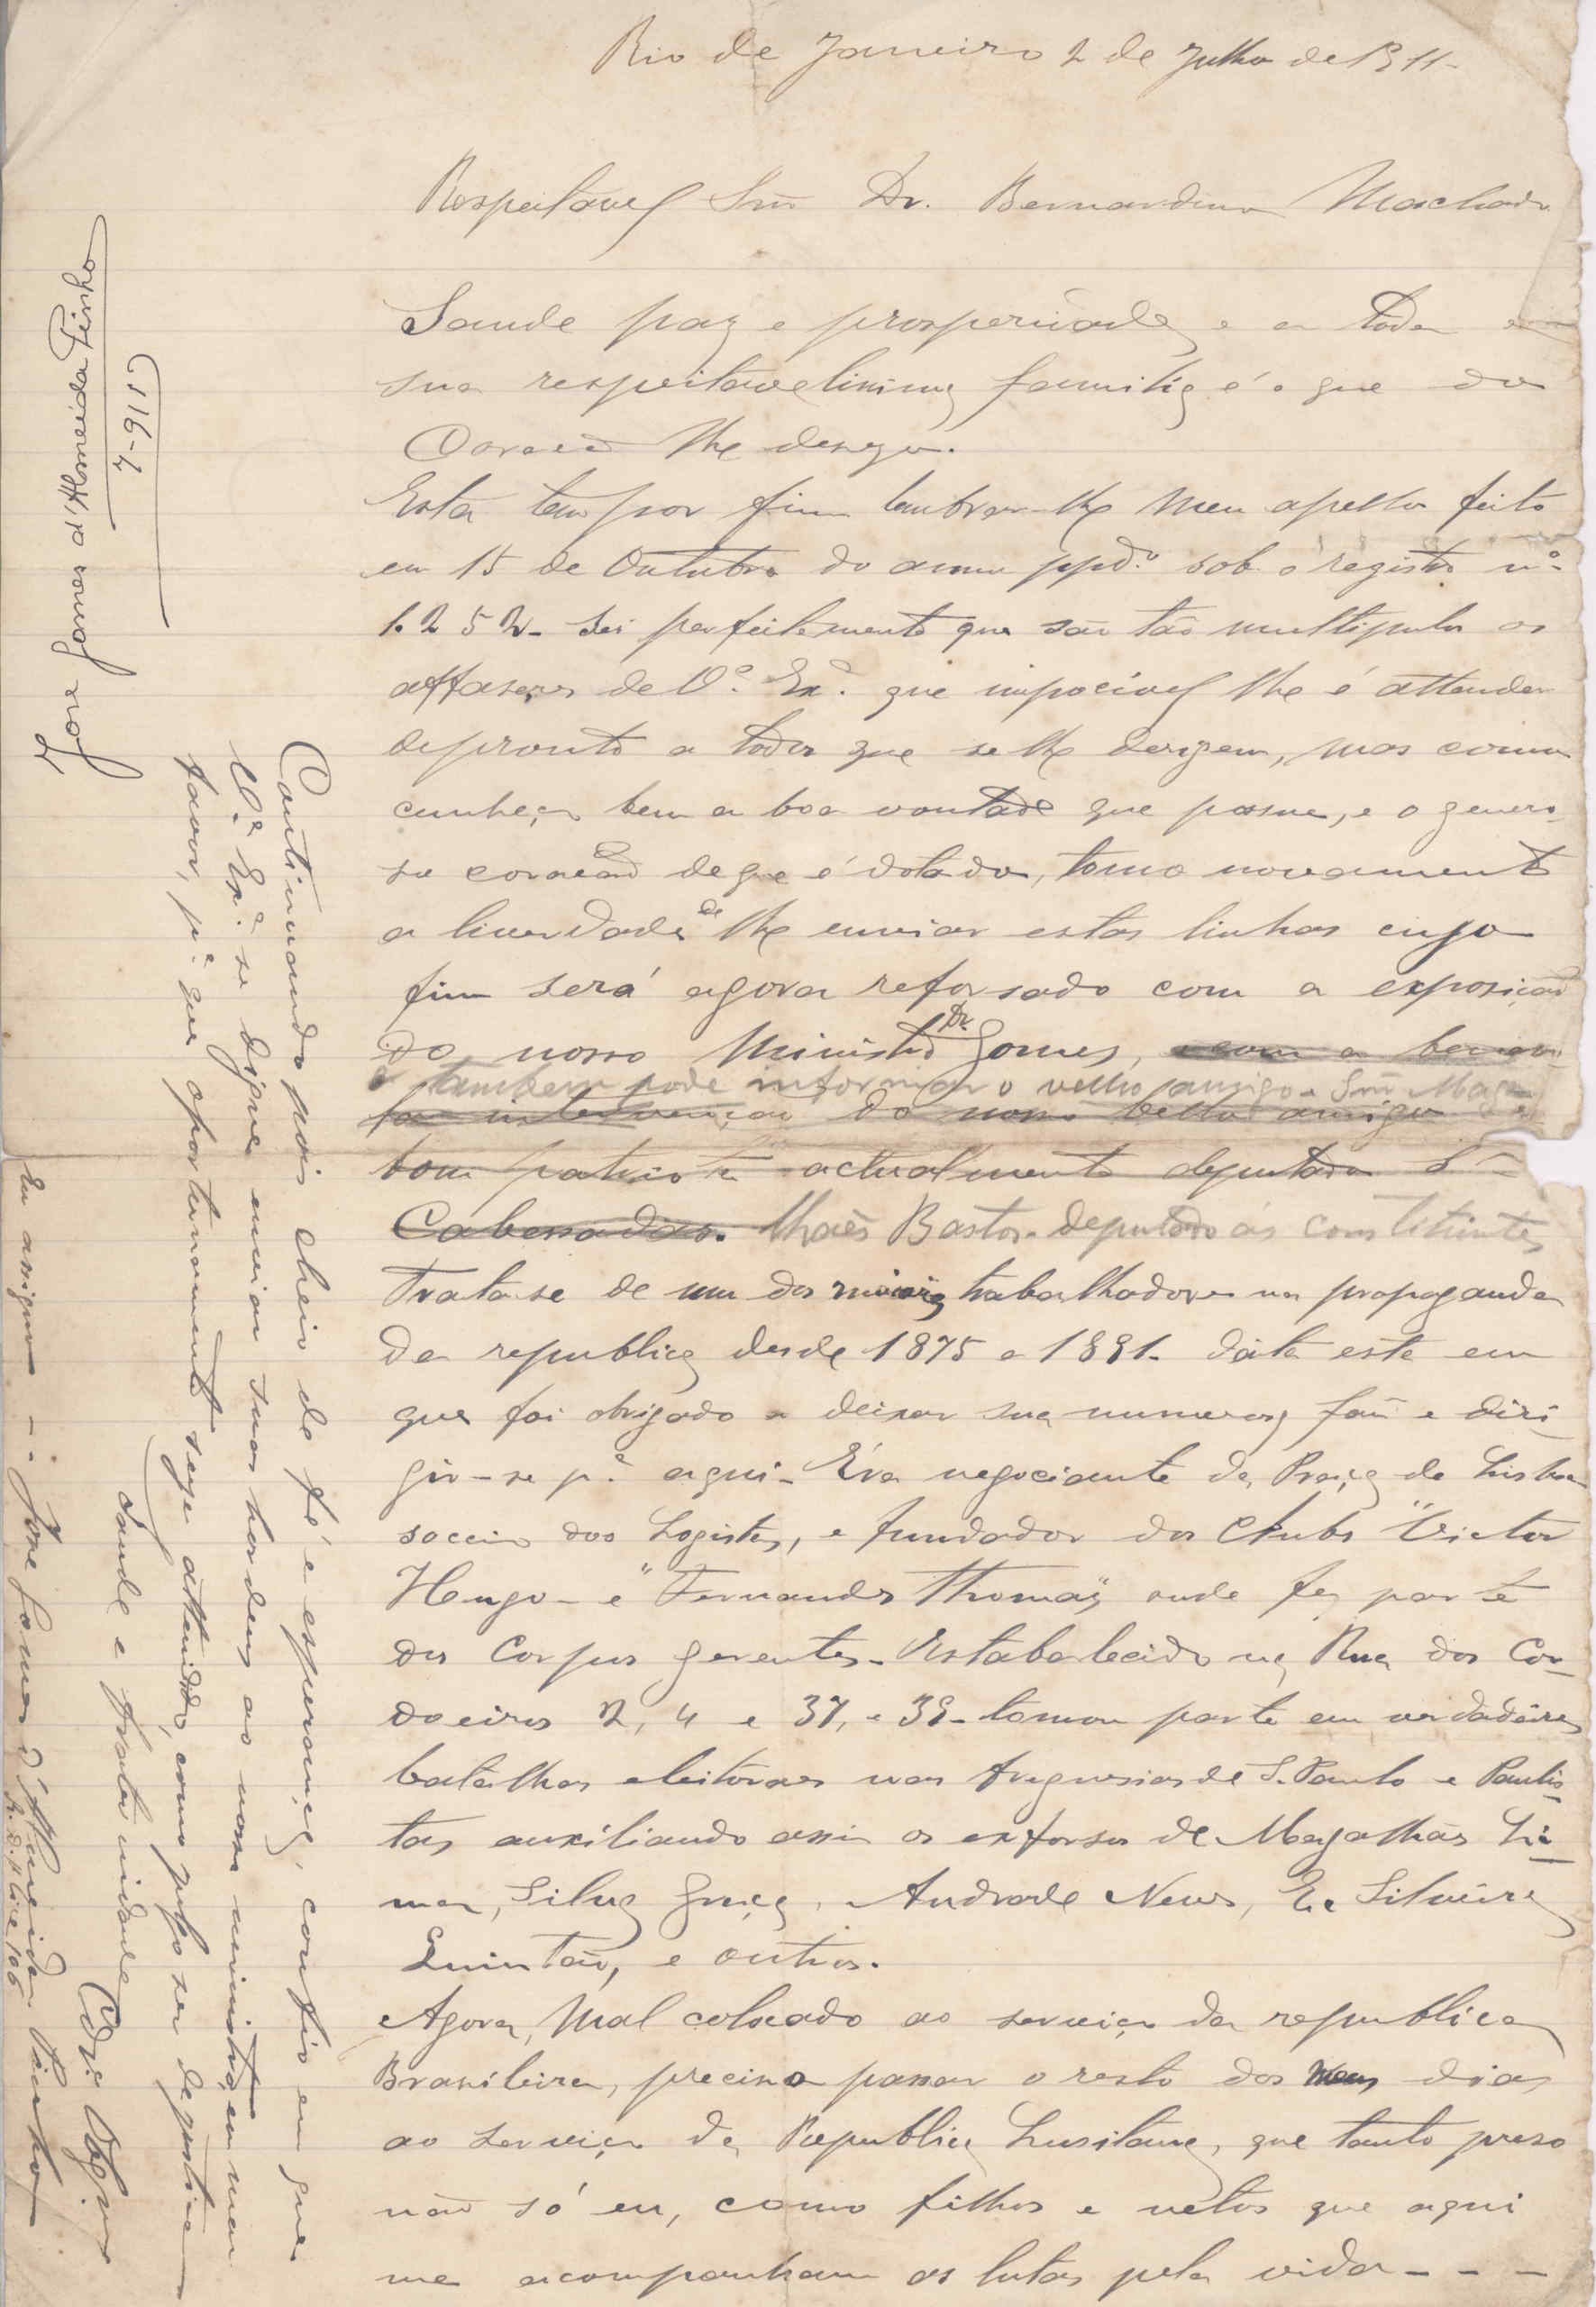 Rio de Janeiro 2 de Julho de 1911-
Respeitavel Snr̃ Dr. Bernardino Machado
Saude paz e prosperidade e a toda a
sua respeitavelissima familia é o que do
Coração lhe desejo.
Esta tem por fim lembrar-lhe meu apello feito
em 15 de Outubro do anno ppdo. sob o registo nº
1.252- Sei perfeitamente que são tão multiplos os
affaseres de Vª. Exª. que impocivel lhe é attender
depronto a todos que se lhe derigem, mas como
cunheço bem a boa vontade que possue, e o genero-
so coração de que é dotado, tomo novamente
a liverdade de lhe enviar estas linhas cujo
fim será agora reforsado com a exposição
do nosso Ministro Dr. Gomes, com a
e tambem pode informar o velho amigo Snr̃ Maga
intervenção do nosso bello amigo e
bom patriota actualmente deputado Sr
Cabessadas. lhaẽs Bastos. deputado ás constituintes
Trata-se de um dos maiores trabalhadores na propaganda
da republica desde 1875 a 1891- dáta este em
que foi obrigado a deixar sua numerosa fam̃ e diri-
gir-se pª aqui- Éra negociante da Praça de Lisboa
soccio dos Logistas, e fundador dos Clubs "Victor
Hugo- e "Fernandes Thomas" onde fez parte
dos Corpus gerentes- Estabelecido na Rua dos Cor-
doeiros 2, 4 e 37, e 39- tomou parte em verdadeiras
batalhas eleitoraes nas freguesias de S. Paulo e Paulis-
tas auxiliando assim os exforsos de Magalhães Li-
ma, Silva Graça, Andrade Neves, E. Silveira
Quintão, e outros.
Agora, Mal colocado ao serviço da republica
Brasileira, preciso passar o resto dos meus dias
ao serviço da Republica Lusitana, que tanto preso
não só eu, como filhos e netos que aqui
me acompanham as lutas pela vida- - -
Continuando pois cheio de fé e esperança, confio em que
Vª Exª. se digne enviar suas hordens ao nosso ministro em meu
favor, pª que oportunamente seja attendido, como julgo ser de justiça
Saude e fraternidade
Seu amigo -- Jose Gomes d'Almeida Pinho
José Gomes d'Almeida Pinho
7-911